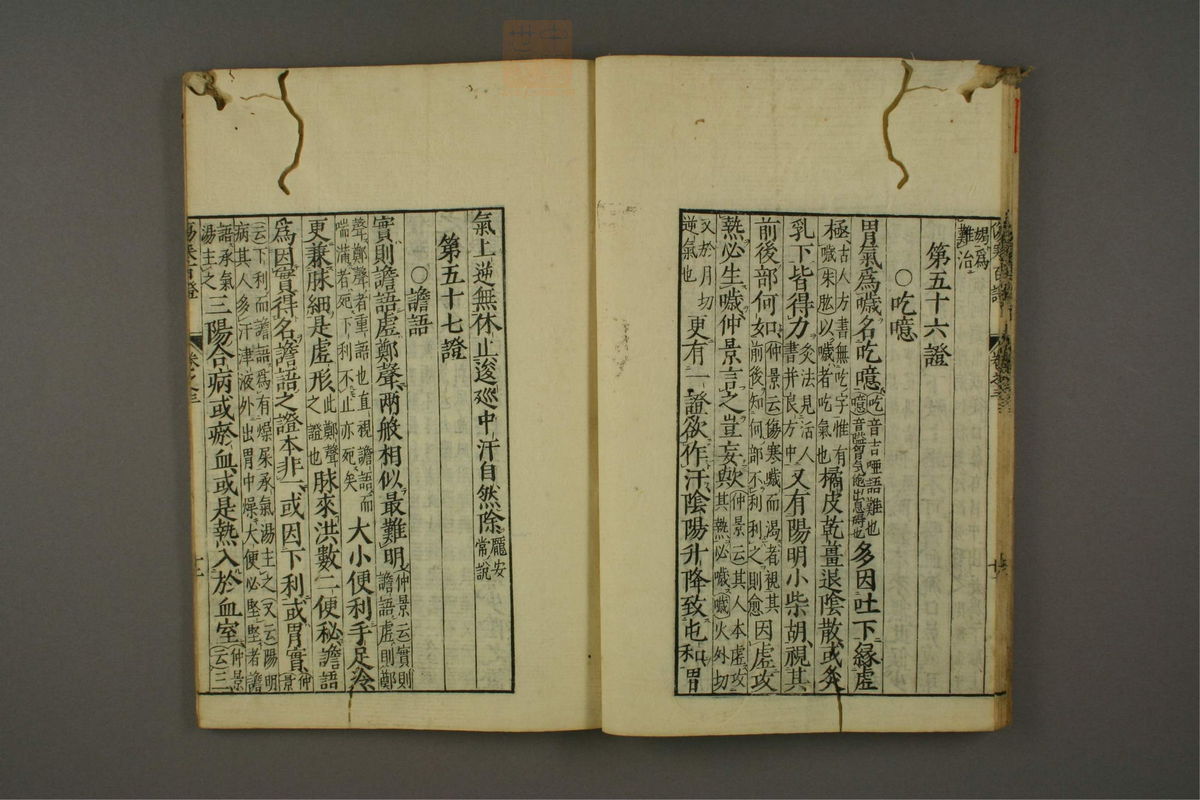 竭爲
難治
第五十六證
○吃噫
胃氣爲噦名吃噫吃音吉啞語難也噫音醫胃氣逆出息碍也多因吐下緣虛
極古人方書無吃字惟有噦朱肱以噦者吃氣也橘皮乾薑退陰散或灸
乳下皆得力灸法見活人書并良方中又有陽明小柴胡視其
前後部何如仲景云傷寒噦而滿者視其前後知何部不利利之則愈因虛攻
熱必生噦仲景言之豈妄歟仲景云其人本虛攻其熱必噦噦火外切
又於月切逆氣也更有一證欲作汗陰陽升降致屯和胃
氣上逆無休止逡巡中汗自然除龐安常說
第五十七證
○譫語
實則譫語虛鄭聲兩般相似最難明仲景云實則譫語虛則鄭
聲鄭聲者重語也直視譫語而喘滿者死下利不止亦死矣大小便利手足冷
更兼脉細是虛形此鄭聲之證也脉來洪數二便秘譫語
爲因實得名譫語之證本非一或因下利或胃實仲景
云下利而譫語爲有燥屎承氣湯主之又云陽明病其人多汗津液外出胃中燥大便必堅堅者譫
語承氣湯主之三陽合病或瘀血或是熱入於血室仲景云三
傷寒百證 卷之三